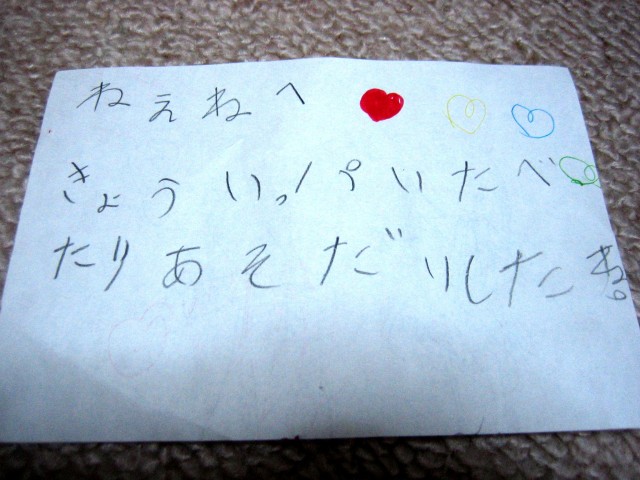 ねぇねへ
きょういっパいたべ
たりあそだ゛りしたね。